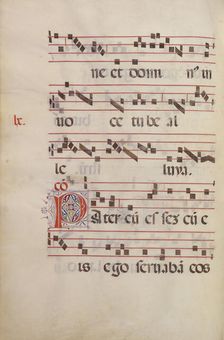 ne et domi nū in
uo ce tube al
le luya.
Pater cū essez cū e
is ego seruabā eos